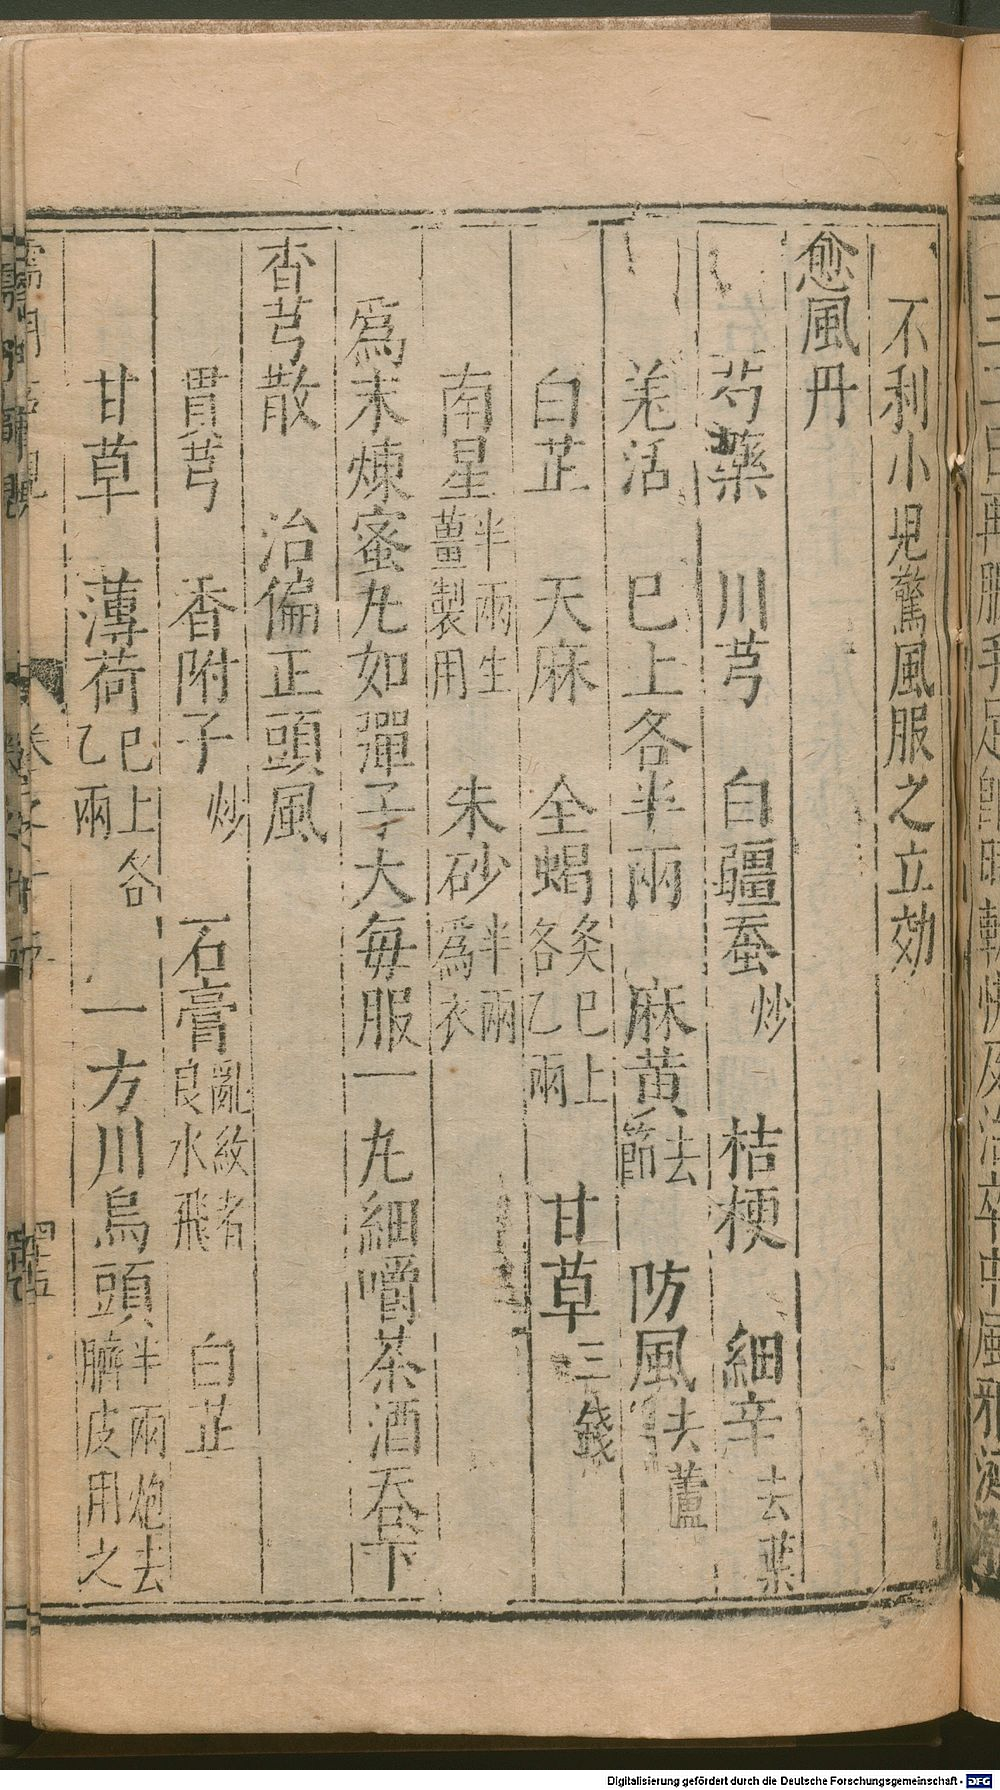 不利小児驚風服之立効
愈風丹
芍藥　川芎　白疆蚕炒　桔梗　細辛去葉
羗活　巳上各半兩　麻黄去節　防風去蘆
白芷　天麻　全蝎炙巳上各乙兩　甘草三錢
南星半兩生薑製用　朱砂半兩爲衣
爲末煉蜜丸如彈子大毎服一丸細嚼茶酒呑下
香芎散　治偏正頭風
貫芎　香附子炒　石膏亂紋者良水飛　白芷
甘草　薄荷巳上各乙兩　一方川烏頭半兩炮去臍皮用之
Digitalisierung gefördert durch die Deutsche Forschungsgemeinschaft - DFG